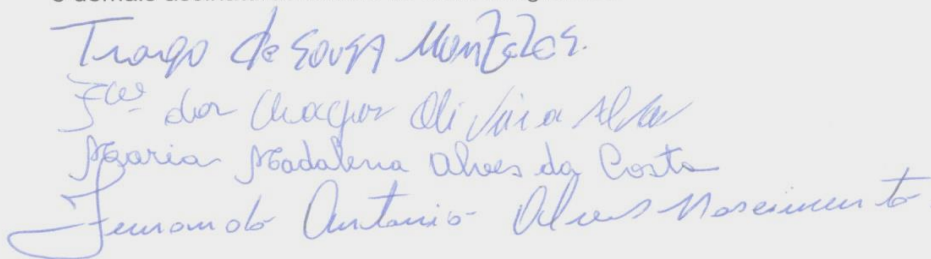 Tiago de Sousa Montezes.
Fco das Chagas Oliveira Alves
Maria Madalena Alves da Costa
Fernando Antonio Alves Nascimento